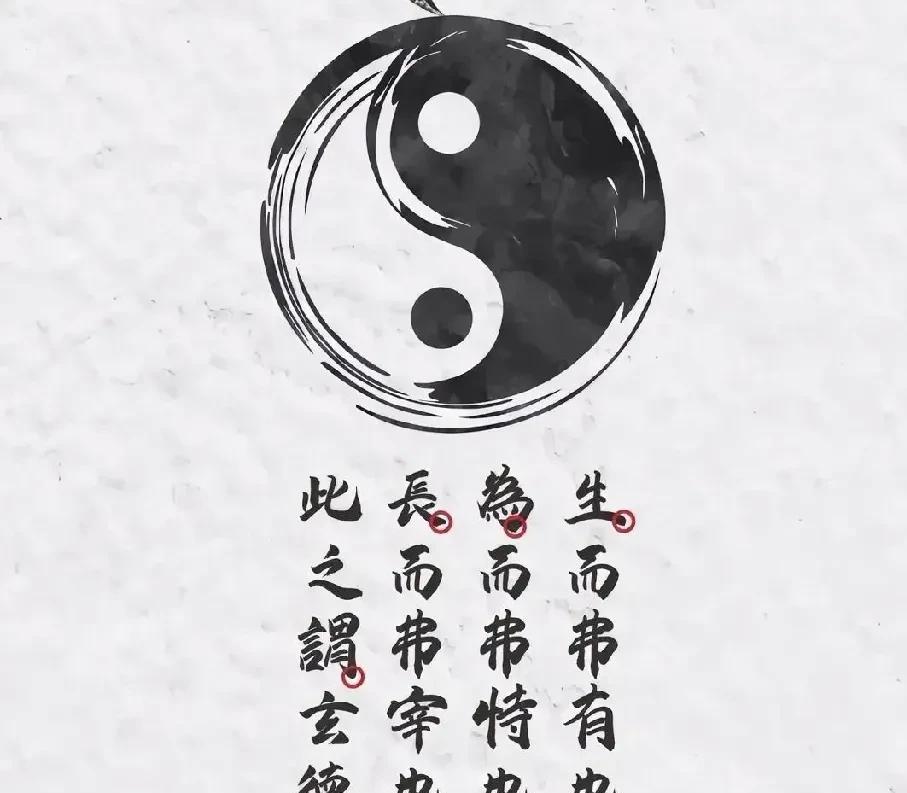 生而弗有也
為而弗恃也
長而弗宰也
此之謂玄德